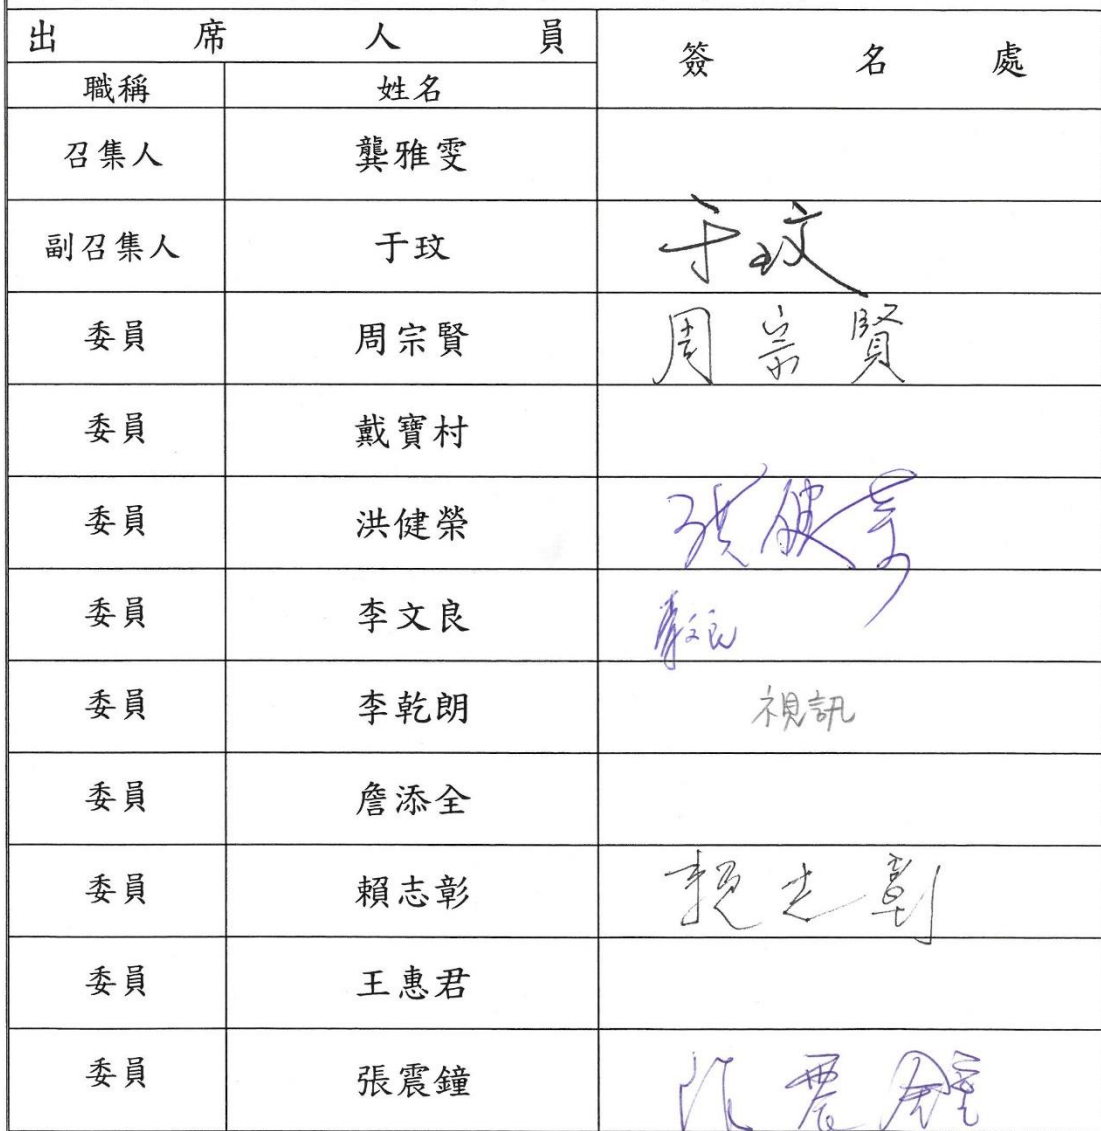 出席人員 簽名處
職稱 姓名
召集人 龔雅雯
副召集人 于玟 于玟
委員 周宗賢 周宗賢
委員 戴寶村
委員 洪健榮 洪健榮
委員 李文良 李文良
委員 李乾朗 視訊
委員 詹添全
委員 賴志彰 賴志彰
委員 王惠君
委員 張震鐘 張震鐘